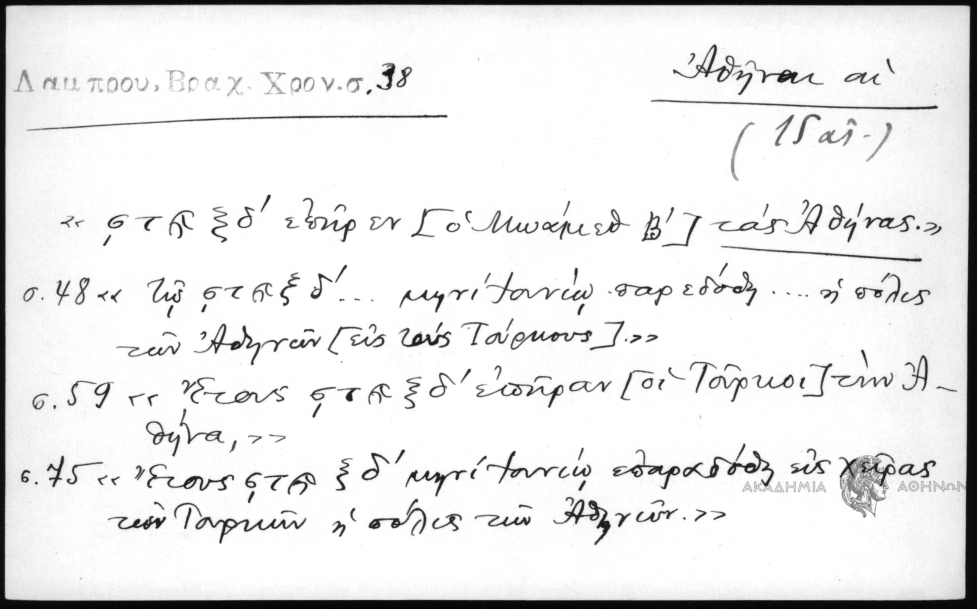 Λαμπρου, Βραχ. Χρον. σ. 38
Ἀθῆναι αἱ
(15 αἰ.)
« ςϡξδ´ ἐπῆρεν [ὁ Μωάμεθ Β´] τὰς Ἀθήνας.»
σ. 48 « Τῷ ςϡξδ´... μηνὶ Ἰουνίῳ παρεδόθη .... ἡ πόλις
τῶν Ἀθηνῶν [εἰς τοὺς Τούρκους].»
σ. 59 « Ἔτους ςϡξδ´ ἐπῆραν [οἱ Τοῦρκοι] τὴν Ἀ-
θήνα,»
σ. 75 « Ἔτους ςϡξδ´ μηνὶ Ἰουνίῳ ἐπαραδόθη εἰς χεῖρας
τῶν Τουρκῶν ἡ πόλις τῶν Ἀθηνῶν.»
ΑΚΑΔΗΜΙΑ ΑΘΗΝΩΝ